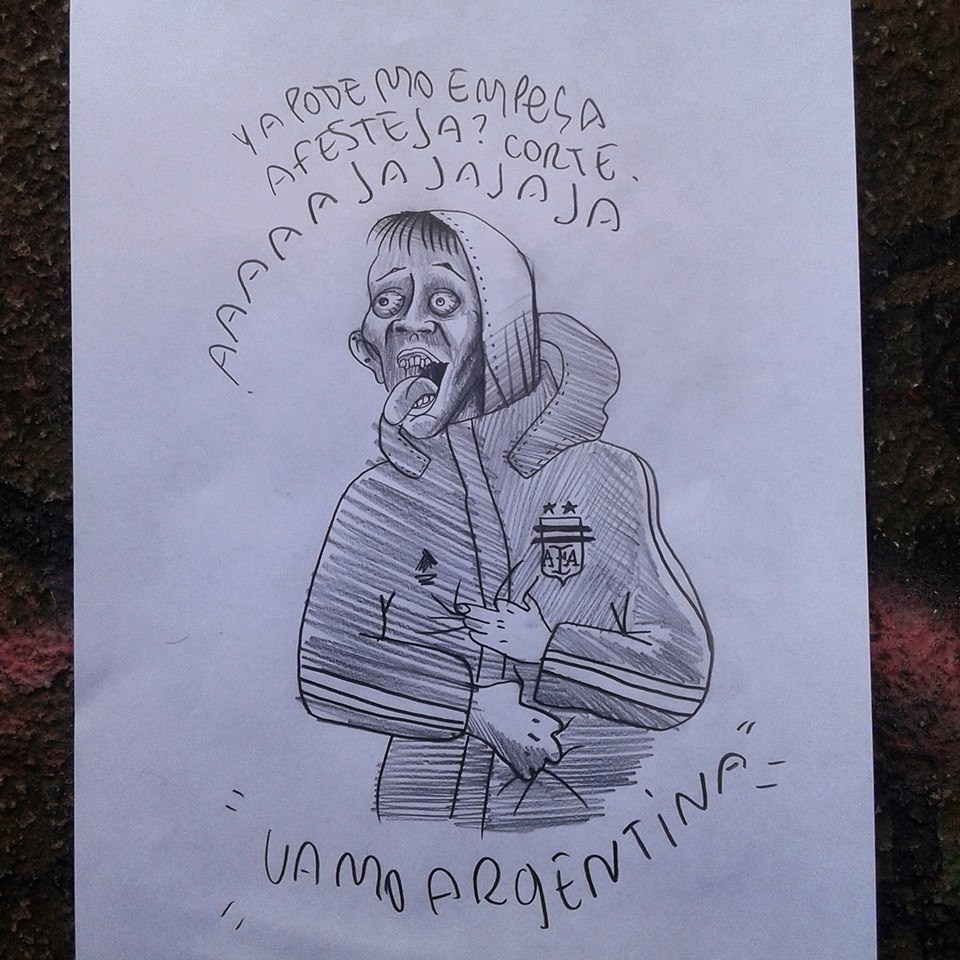 YA PODEMO EMPESA
A FESTEJA? CORTE.
AAAAAAJAJAJAJAJA
AFA
"VAMO ARGENTINA"